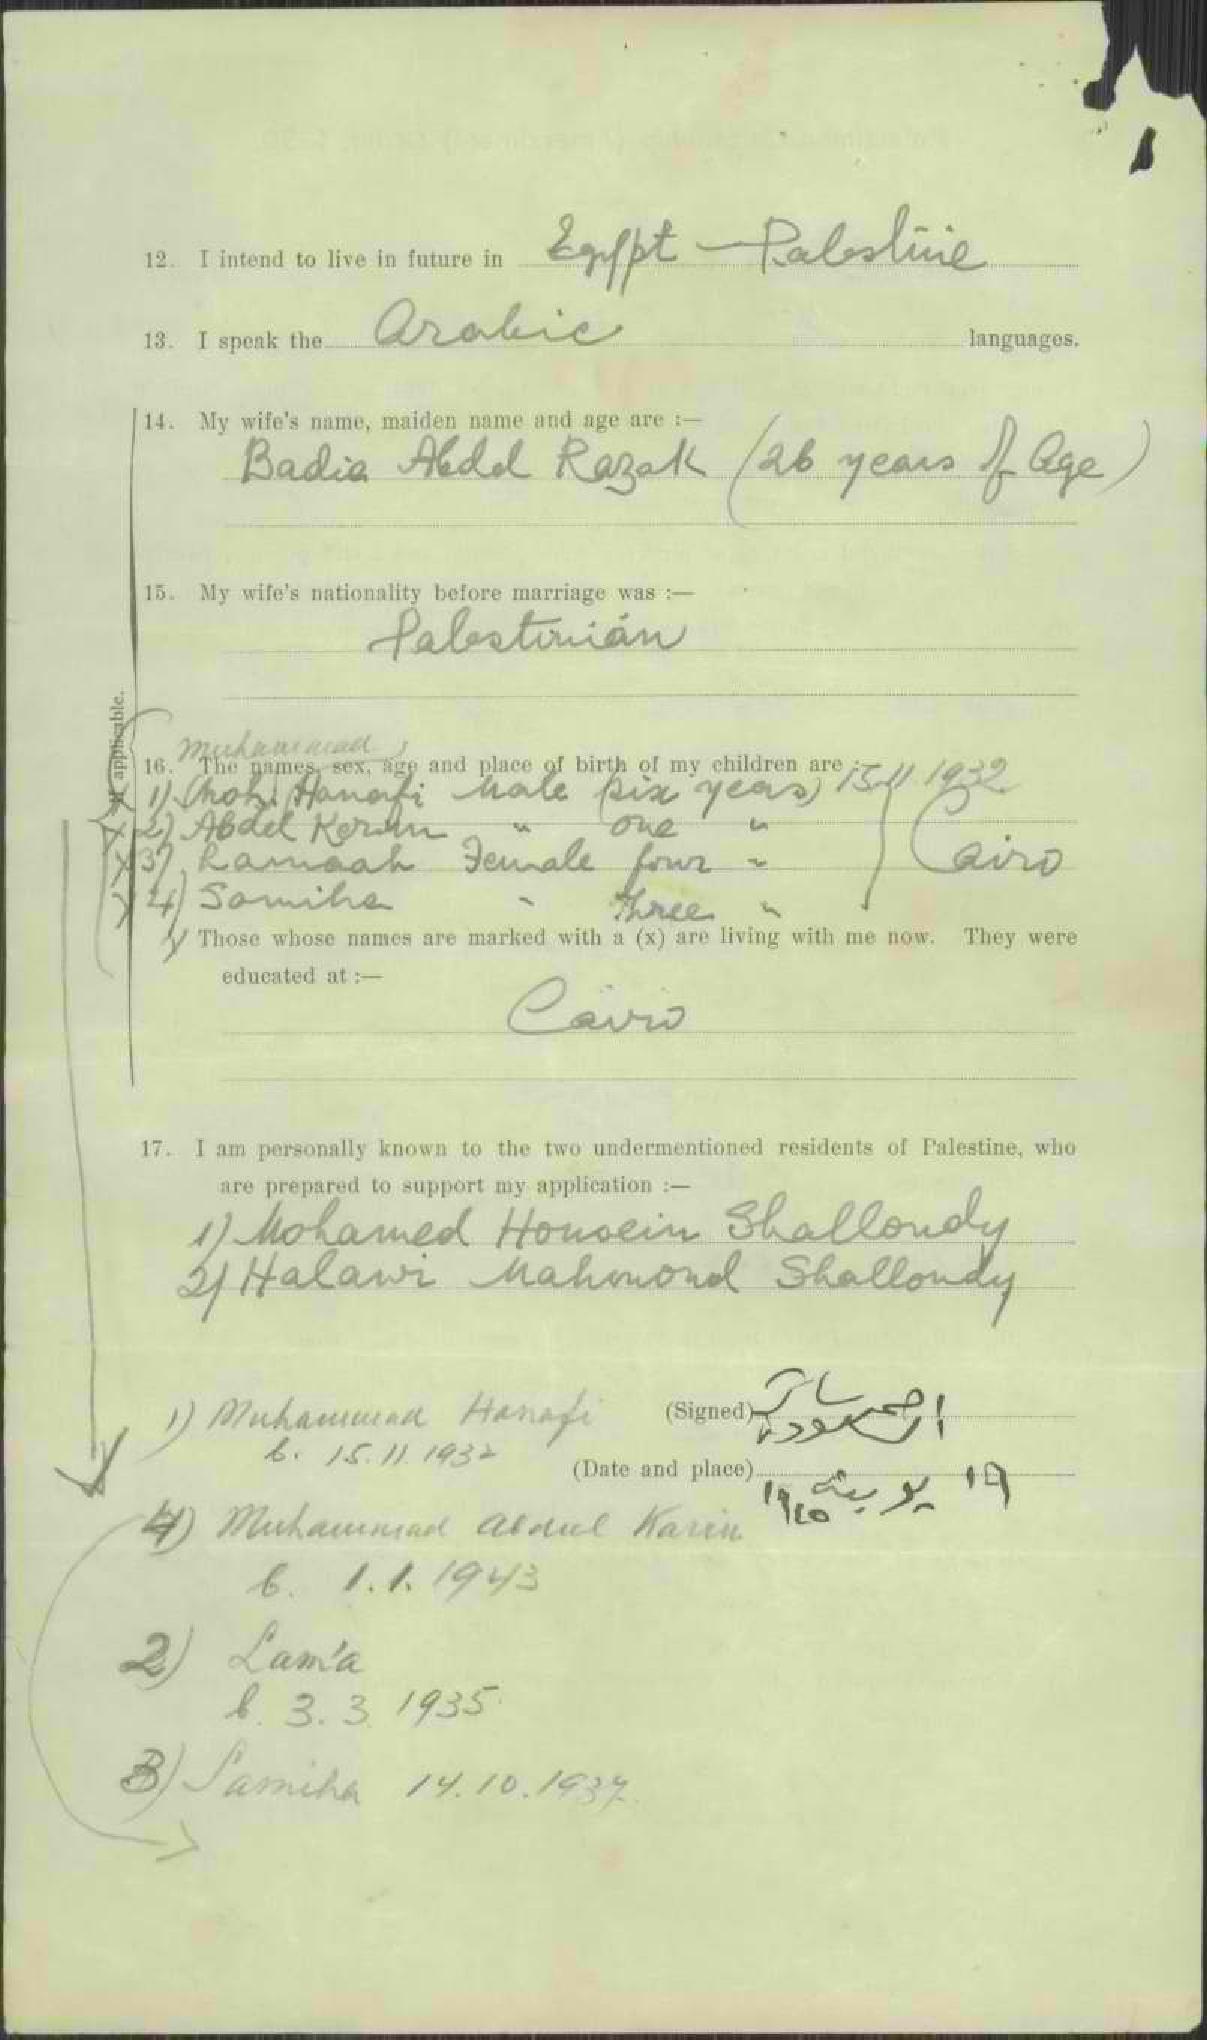 12. I intend to live in future in Egypt — Palestine
13. I speak the Arabic languages.
14. My wife's name, maiden name and age are :—
Badia Abdel Razak (26 years of Age)
15. My wife's nationality before marriage was :—
Palestinian
If applicable.
Muhammad
16. The names, sex, age and place of birth of my children are :— 15.11.1932
x 1) Moh. Hanafi Male (six years)
x 2) Abdel Kerim " one "
x 3) Lamaah Female four " Cairo
x 4) Samiha " three "
Those whose names are marked with a (x) are living with me now. They were
educated at :—
Cairo
17. I am personally known to the two undermentioned residents of Palestine, who
are prepared to support my application :—
1) Mohamed Houssein Shalloudy
2) Halawi Mahmoud Shalloudy
1) Muhammad Hanafi
(Signed)
b. 15.11.1932
(Date and place) ١٩ يونية ١٩٤٥
4) Muhammad Abdul Karim
b. 1.1.1943
2) Lam'a
b. 3.3.1935
3) Samiha 14.10.1937